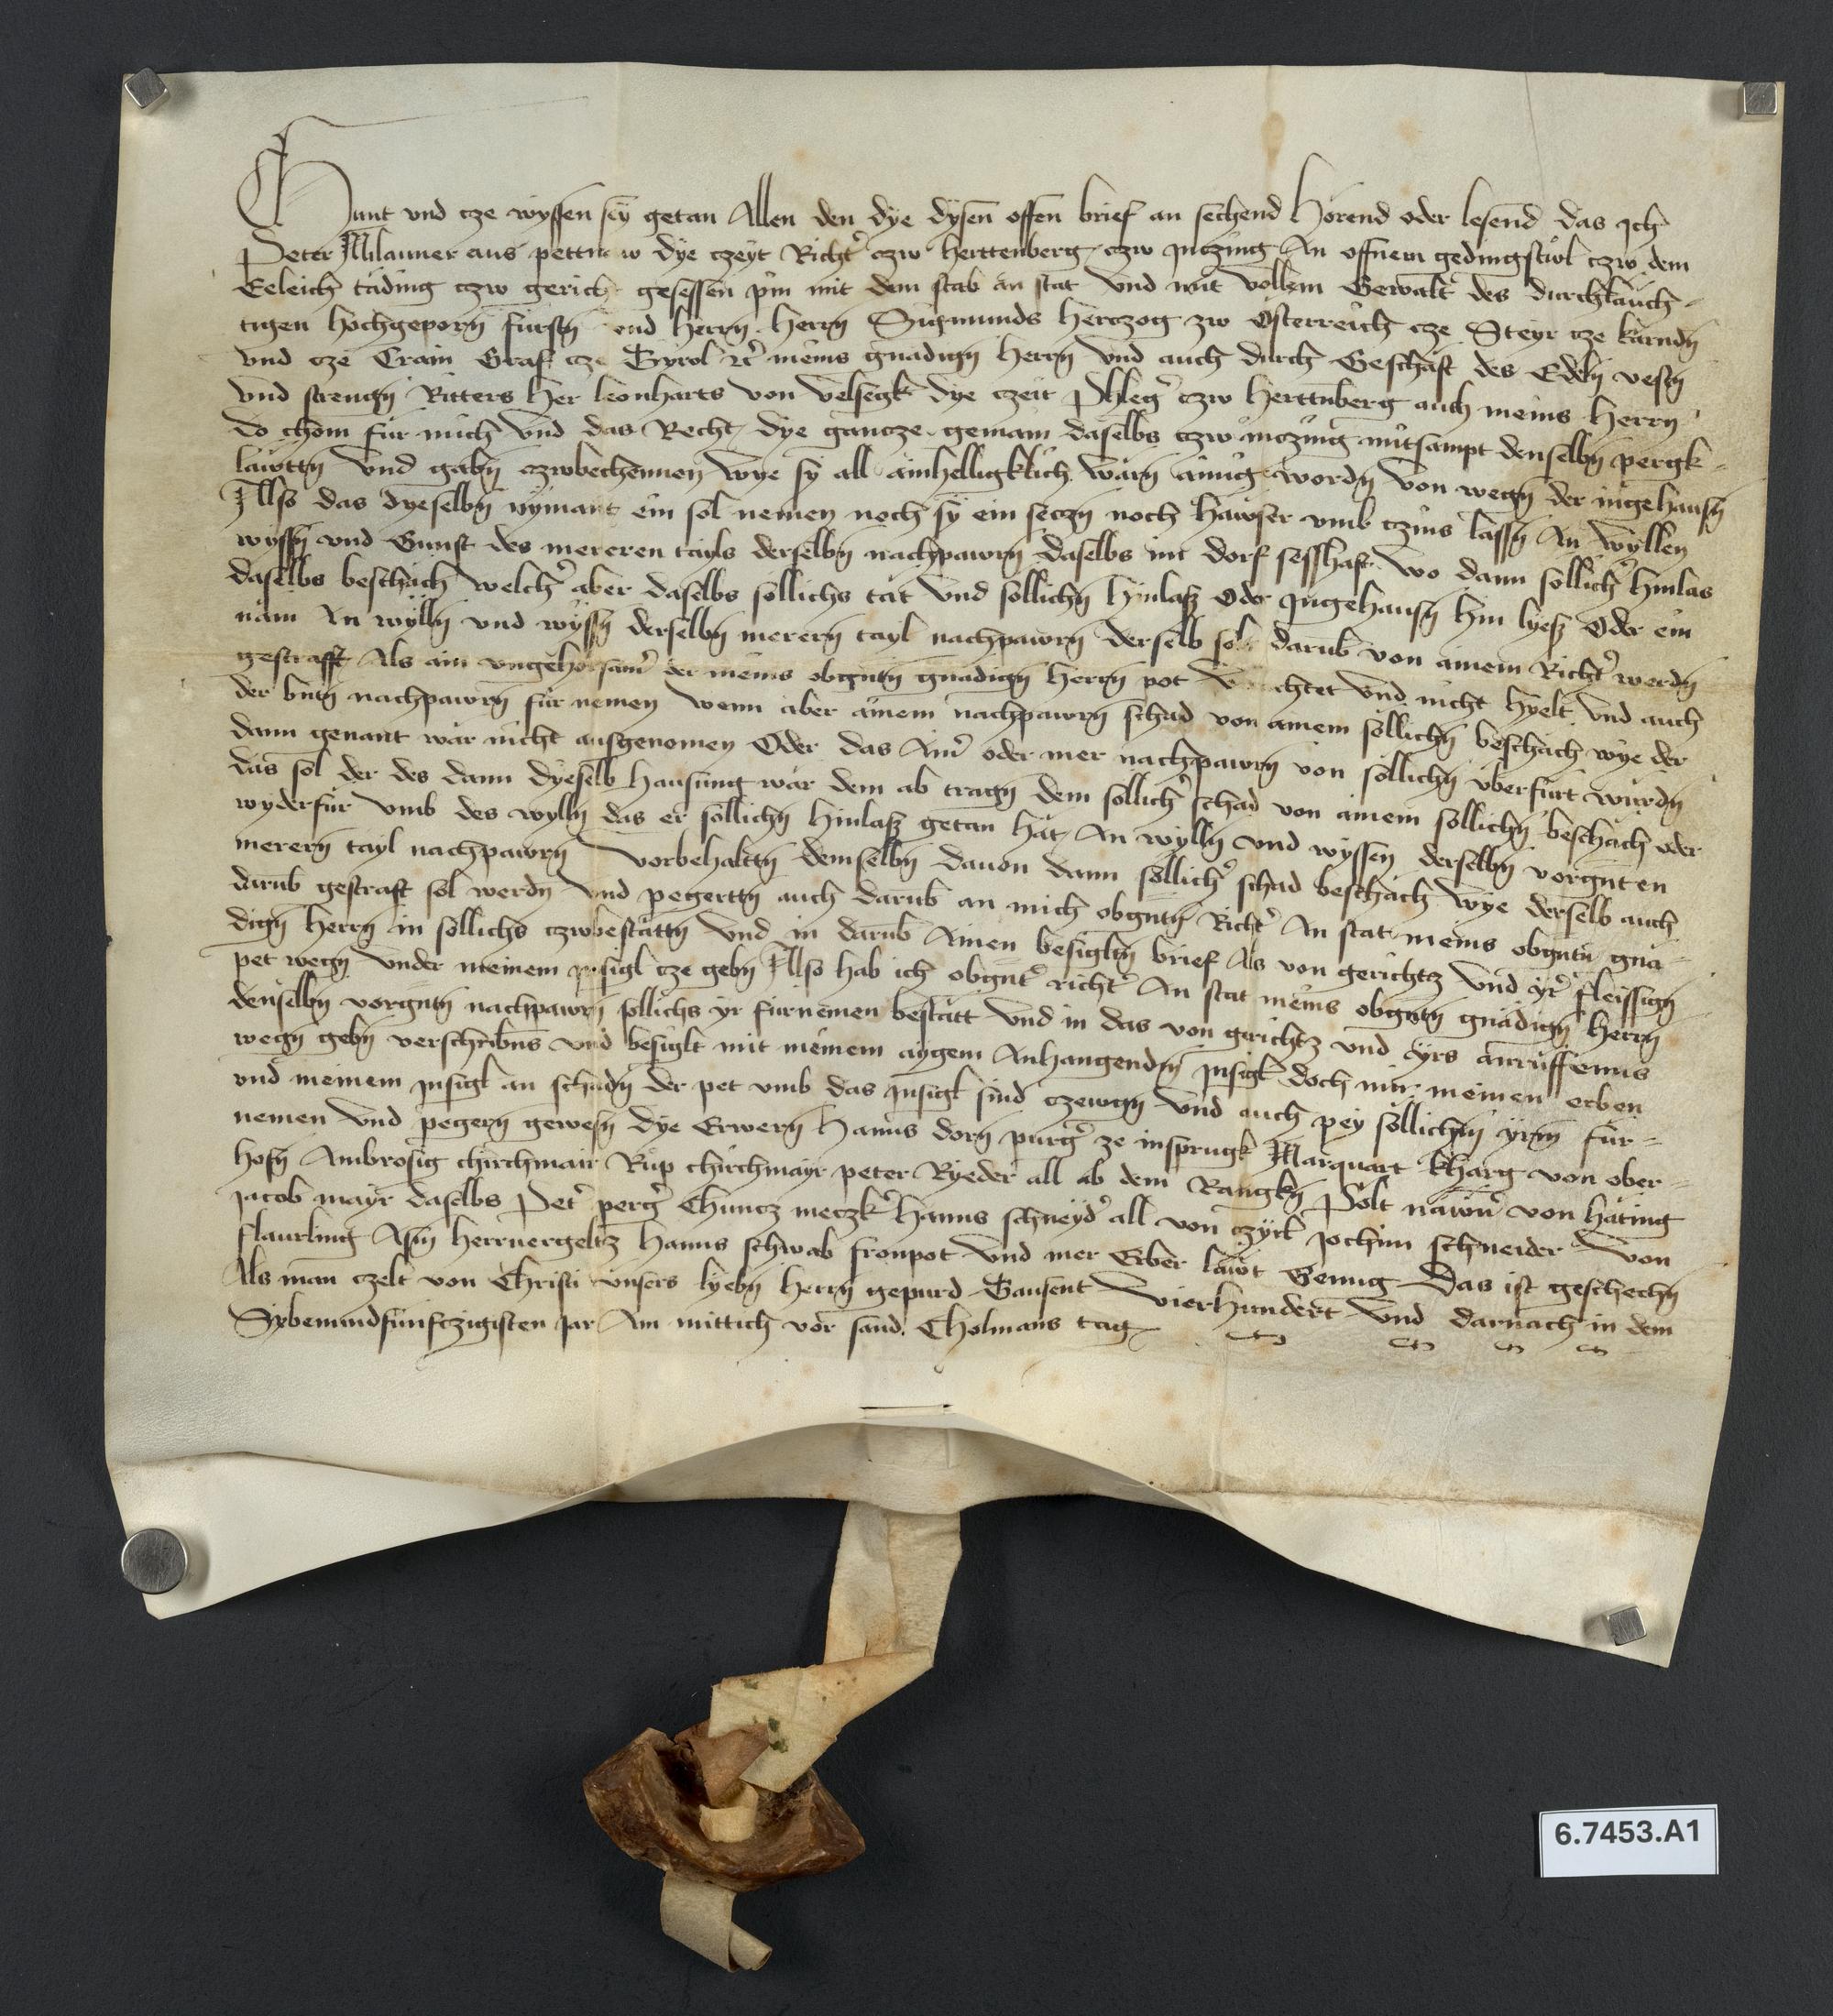 Chunt vnd cze wyssen sey getan Allen den dye dysen offen brief an sechend Hörend oder lesend das Jch
Peter Milauner aus pettnaw dye czeyt Richt̾ czw herttenberg czw jnczing An offnem gedingstůl czw dem
Eeleich täding czw gericht gesessen pin mit dem stab an stat vnd mit vollem Gewalt des durchläuch-
tigen hochgeporn̄ fürstn̄ vnd herrn̄ herrn̄ Sigmunds hertzog zw Österreich cze Steyr cze kärndn̄
vnd cze Crain Graf cze Tyrol ꝛc̾ meins gnädign̄ herrn̄ vnd auch durch Geschäft des Edeln̄ vestn̄
vnd strengn̄ Ritters Her leonharts von velsegk dye czeit Phleg̾ czw herttnberg auch meins herrn̄
do chom für mich vnd das Recht dye gancze gemain daselbs czw inczing mitsampt denselbn̄ pergk-
läwttn̄ vnd gabn̄ czwbechennen wye sy all ainhelligklich wärn ainig wordn̄ von wegn̄ der ingehausn̄
Also das dyeselbn̄ nymant ein sol nemen noch sy ein seczn̄ noch häwser vmb czins lassn̄ An wyllen
wyssn̄ vnd Gunst des mereren tayls derselbn̄ nachpawrn̄ daselbs im dorf sesshaft wo dann sollich̾ hinlas
daselbs beschäch welch̾ aber daselbs sollichs tät vnd sollichn̄ hinlasz Oder jngehausn̄ hin lyesz Oder ein
näm An wylln̄ vnd wyssn̄ derselbn̄ merern̄ tayl nachpawrn̄ derselb sol darub̄ von ainem Richt̾ werdn̄
gestrafft Als ain vngehorsam̾ der meins obgntn̄ gnädign̄ herrn̄ pot vachtet vnd nicht hyelt vnd auch
der bntn̄ nachpawrn̄ für nemen wenn aber ainem nachpawrn̄ schad von ainem sollichn̄ beschäch wye der
dann genant wär nicht ausgenomen Oder das ain̾ oder mer nachpawrn̄ von sollichn̄ vberfürt wurdn̄
das sol der des dann dyeselb hausung wär dem ab tragn̄ dem sollich̾ schad von ainem sollichn̄ beschäch oder
wyderfür vmb des wylln̄ das er sollichn̄ hinlasz getan hät An wylln̄ vnd wyssen derselbn̄ vorgnten
merern̄ tayl nachpawrn̄ vorbehalttn̄ demselbn̄ dauon dann sollich̾ schad beschäch wye derselb auch
darub̄ gestraft sol werdn̄ vnd pegertn̄ auch darub̄ an mich obgntn̄ Richt̾ An stat meins obgntn̄ gnä-
dign̄ herrn̄ in sollichs czwbestättn̄ vnd in darub̄ Ainen besigltn̄ brief Als von gerichtz vnd yr̾ fleissign̄
pet wegn̄ vnder meinem jnsigl cze gebn̄ Also hab ich obgnt̾ richt̾ An stat meins obgntn̄ gnädign̄ herrn̄
denselbn̄ vorgntn̄ nachpawrn̄ sollichs yr fürnemen bestätt vnd in das von gerichtz vnd yrs anrüffenns
wegn̄ gebn̄ verschribn̄s vnd besiglt mit meinem aygem Anhangendn̄ jnsigl doch mir meinen erben
vnd meinem jnsigl an schadn̄ der pet vmb das jnsigl sind czewgn̄ vnd auch pey söllichm̄ yrm̄ für-
nemen vnd pegern̄ gewesn̄ dye Erwern̄ hanns dorn purg̾ ze insprugk Marquart kharg von ober-
hofn̄ Ambrosig chirchmair Rüp chirchmayr peter Ryeder all ab dem Rangkn̄ Pölt näwn̾ von häting
jacob mayr daselbs Pet̾ perg̾ Chuncz meczk̾ hanns schneyd̾ all von czyrl jochim schneider von
flaurling Asm̄ herrnergeltz hanns schwab fronpot vnd mer Erber läwt Genug Das ist geschechn̄
Als man czelt von Christi vnsers lyebn̄ herrn̄ gepurd Tausent Vierhundert vnd darnach in dem
Sybenundfünfczigisten jar Am mittich vor sand Cholmans tag
6.7453.A1